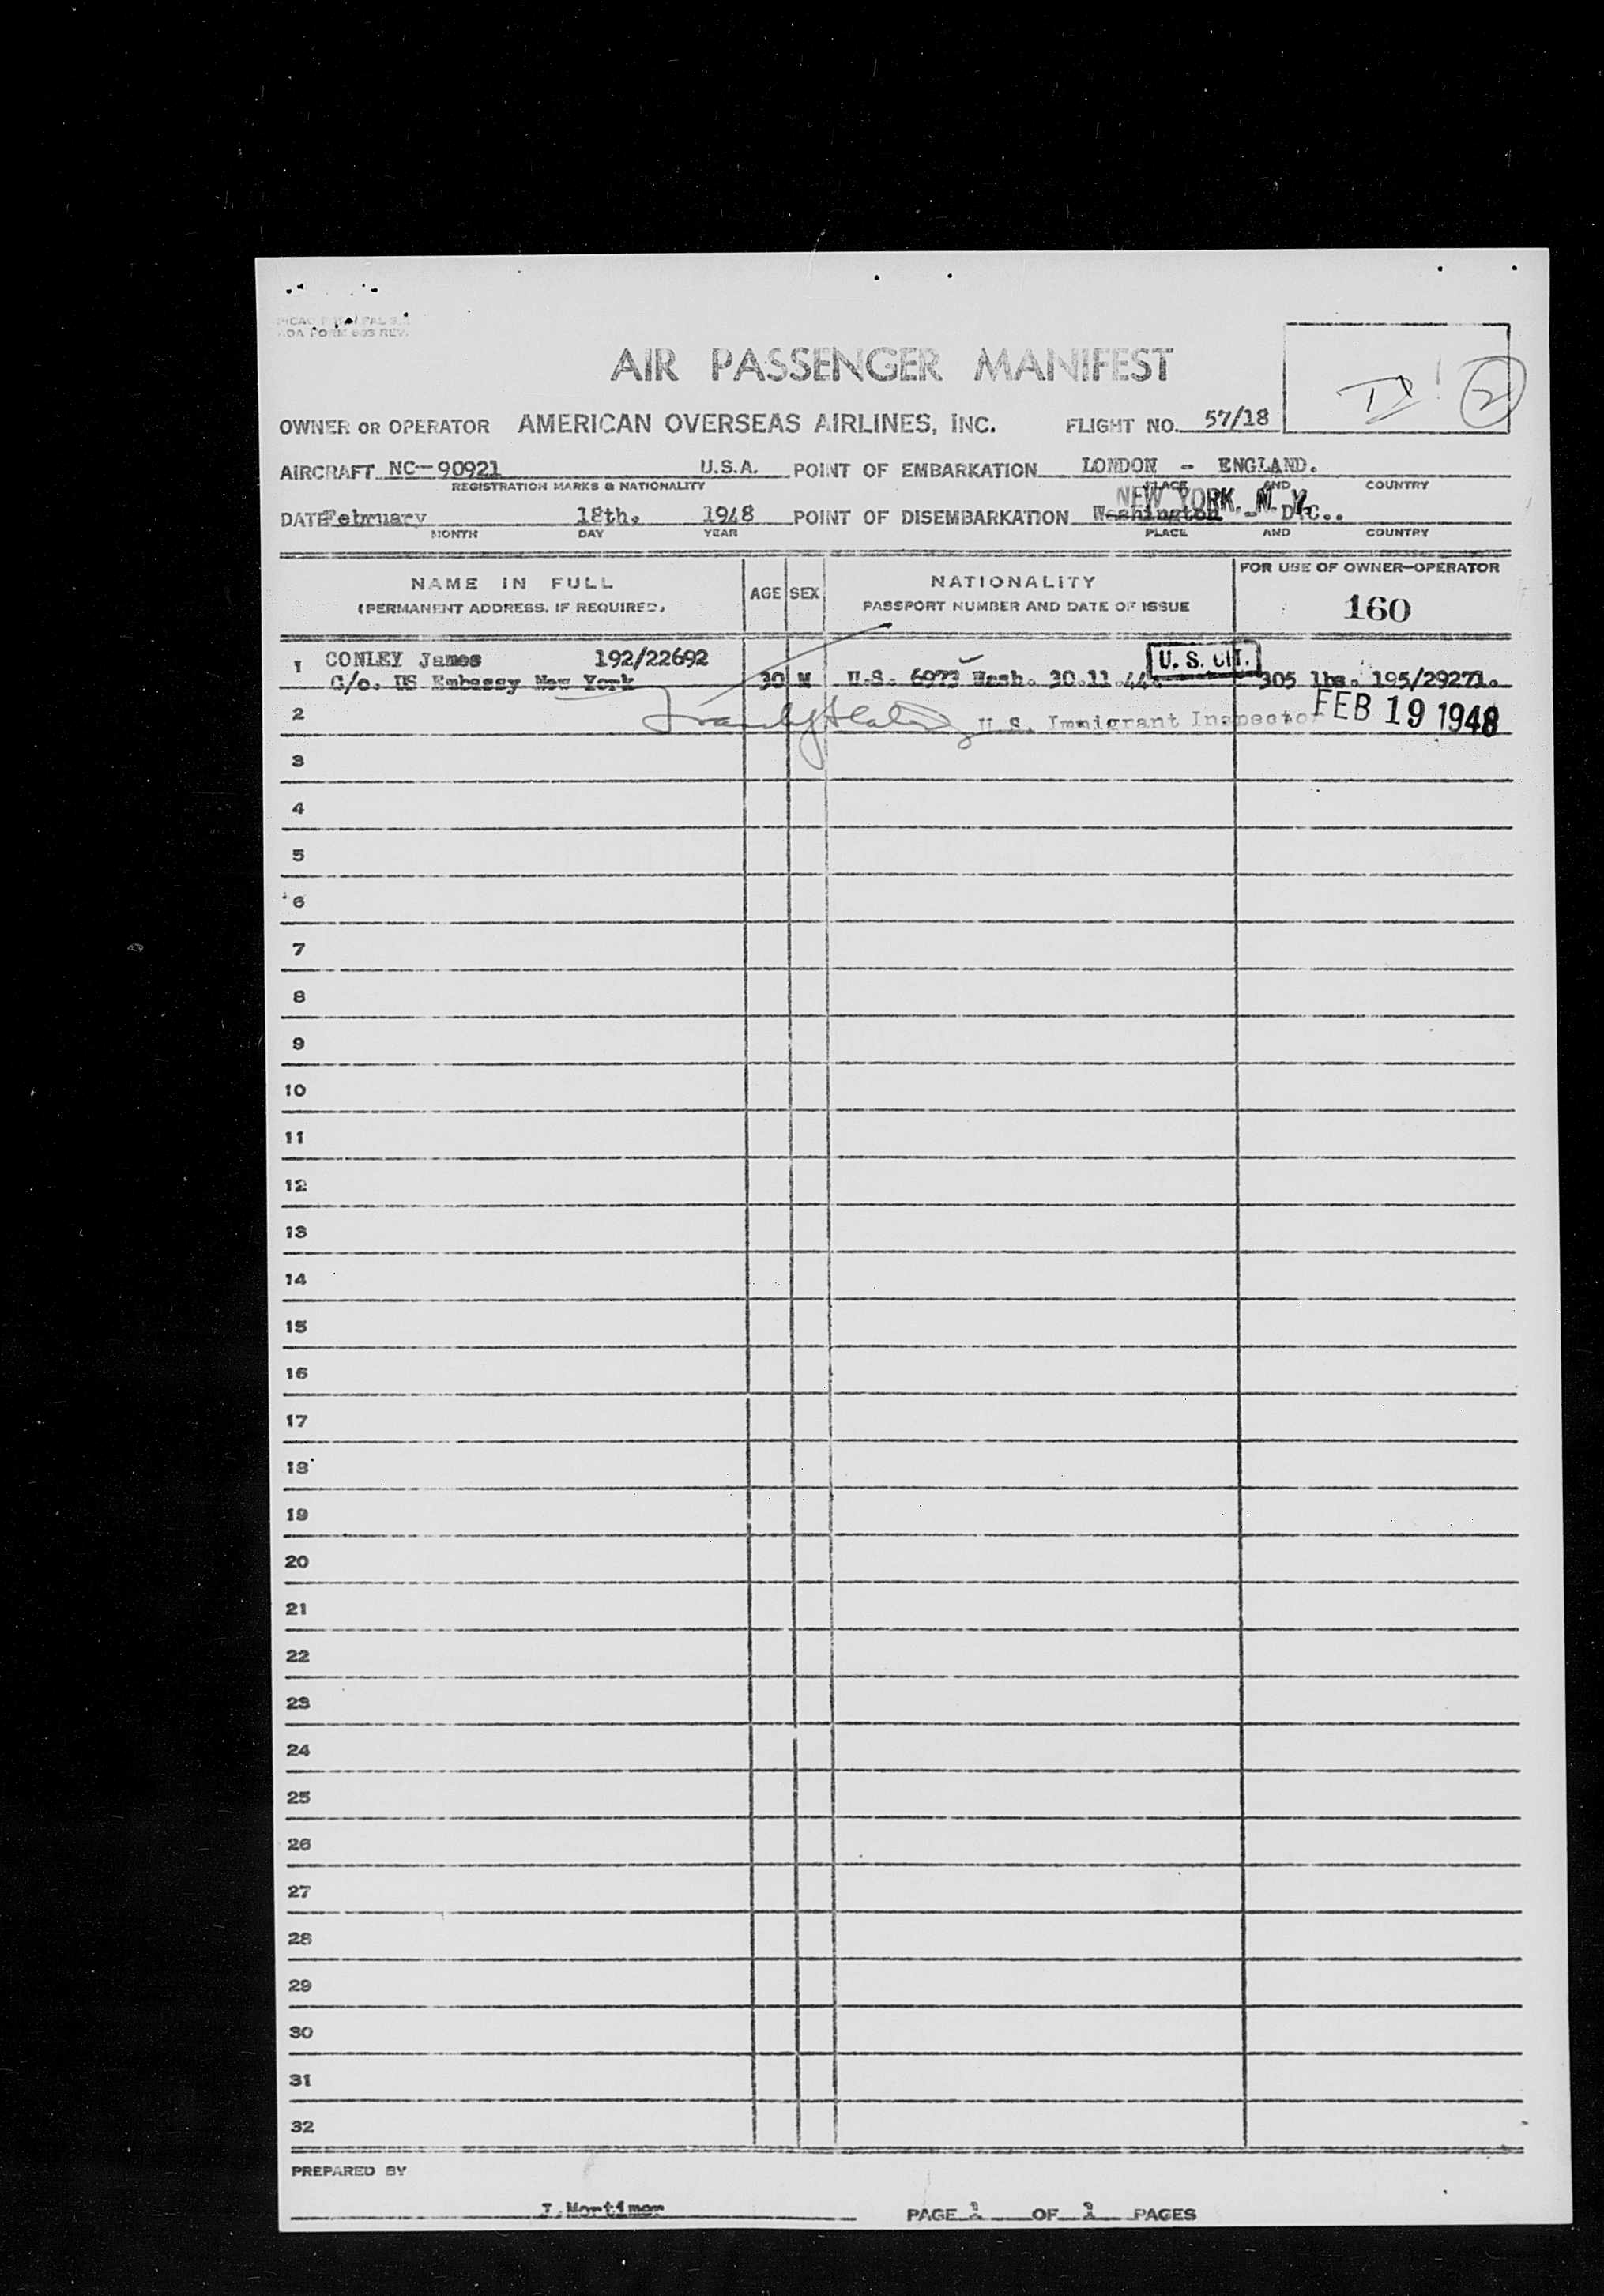 AOA FORM 603 REV.
AIR PASSENGER MANIFEST
2
OWNER OR OPERATOR AMERICAN OVERSEAS AIRLINES, INC. FLIGHT NO. 57/18
AIRCRAFT NC-90921 U.S.A. POINT OF EMBARKATION LONDON - ENGLAND.
REGISTRATION MARKS & NATIONALITY PLACE AND COUNTRY
NEW YORK, N. Y.
DATE February 18th. 1948 POINT OF DISEMBARKATION Washington - D.C..
MONTH DAY YEAR PLACE AND COUNTRY
NAME IN FULL
(PERMANENT ADDRESS, IF REQUIRED)
AGE SEX
NATIONALITY
PASSPORT NUMBER AND DATE OF ISSUE
FOR USE OF OWNER-OPERATOR
160
1 CONLEY James 192/22692 U. S. CIT.
C/o. US Embassy New York 30 M U.S. 6973 Wash. 30.11.44. 305 lbs. 195/29271.
2 U.S. Immigrant Inspector FEB 19 1948
3
4
5
6
7
8
9
10
11
12
13
14
15
16
17
18
19
20
21
22
23
24
25
26
27
28
29
30
31
32
PREPARED BY
J.Mortimer PAGE 1 OF 1 PAGES